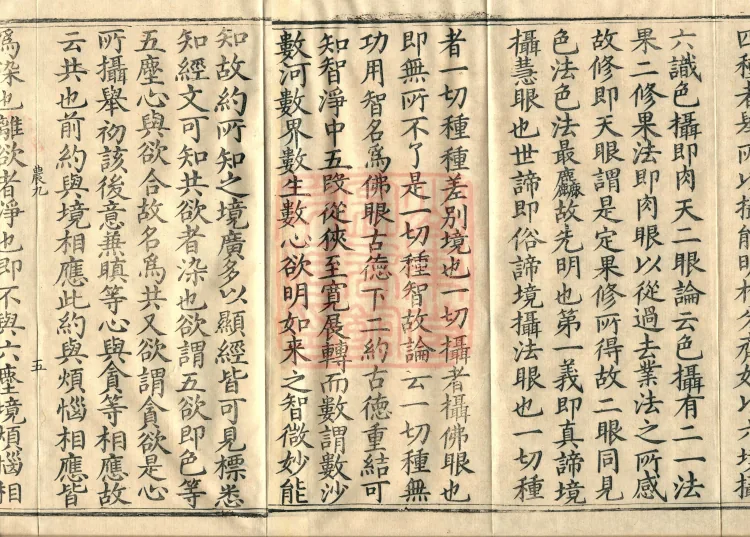 六識色攝即肉天二眼論云色攝有二一法
果二修果法即肉眼以從過去業法之所感
故修即天眼謂是定果修所得故二眼同見
色法色法最麤故先明也第一義即真諦境
攝慧眼也世諦即俗諦境攝法眼也一切種
者一切種種差別境也一切攝者攝佛眼也
即無所不了是一切種智故論云一切種無
功用智名爲佛眼古德下二約古德重結可
知智淨中五段從狹至寬展轉而數謂數沙
數河數界數生數心欲明如来之智微妙能
知故約所知之境廣多以顯經皆可見標悉
知經文可知共欲者染也欲謂五欲即色等
五塵心與欲合故名爲共又欲謂貪欲是心
所攝舉初該後意兼瞋等心與貪等相應故
云共也前約與境相應此約與煩惱相應皆
農九
五
爲染也離欲者淨也即不與六塵境煩惱相